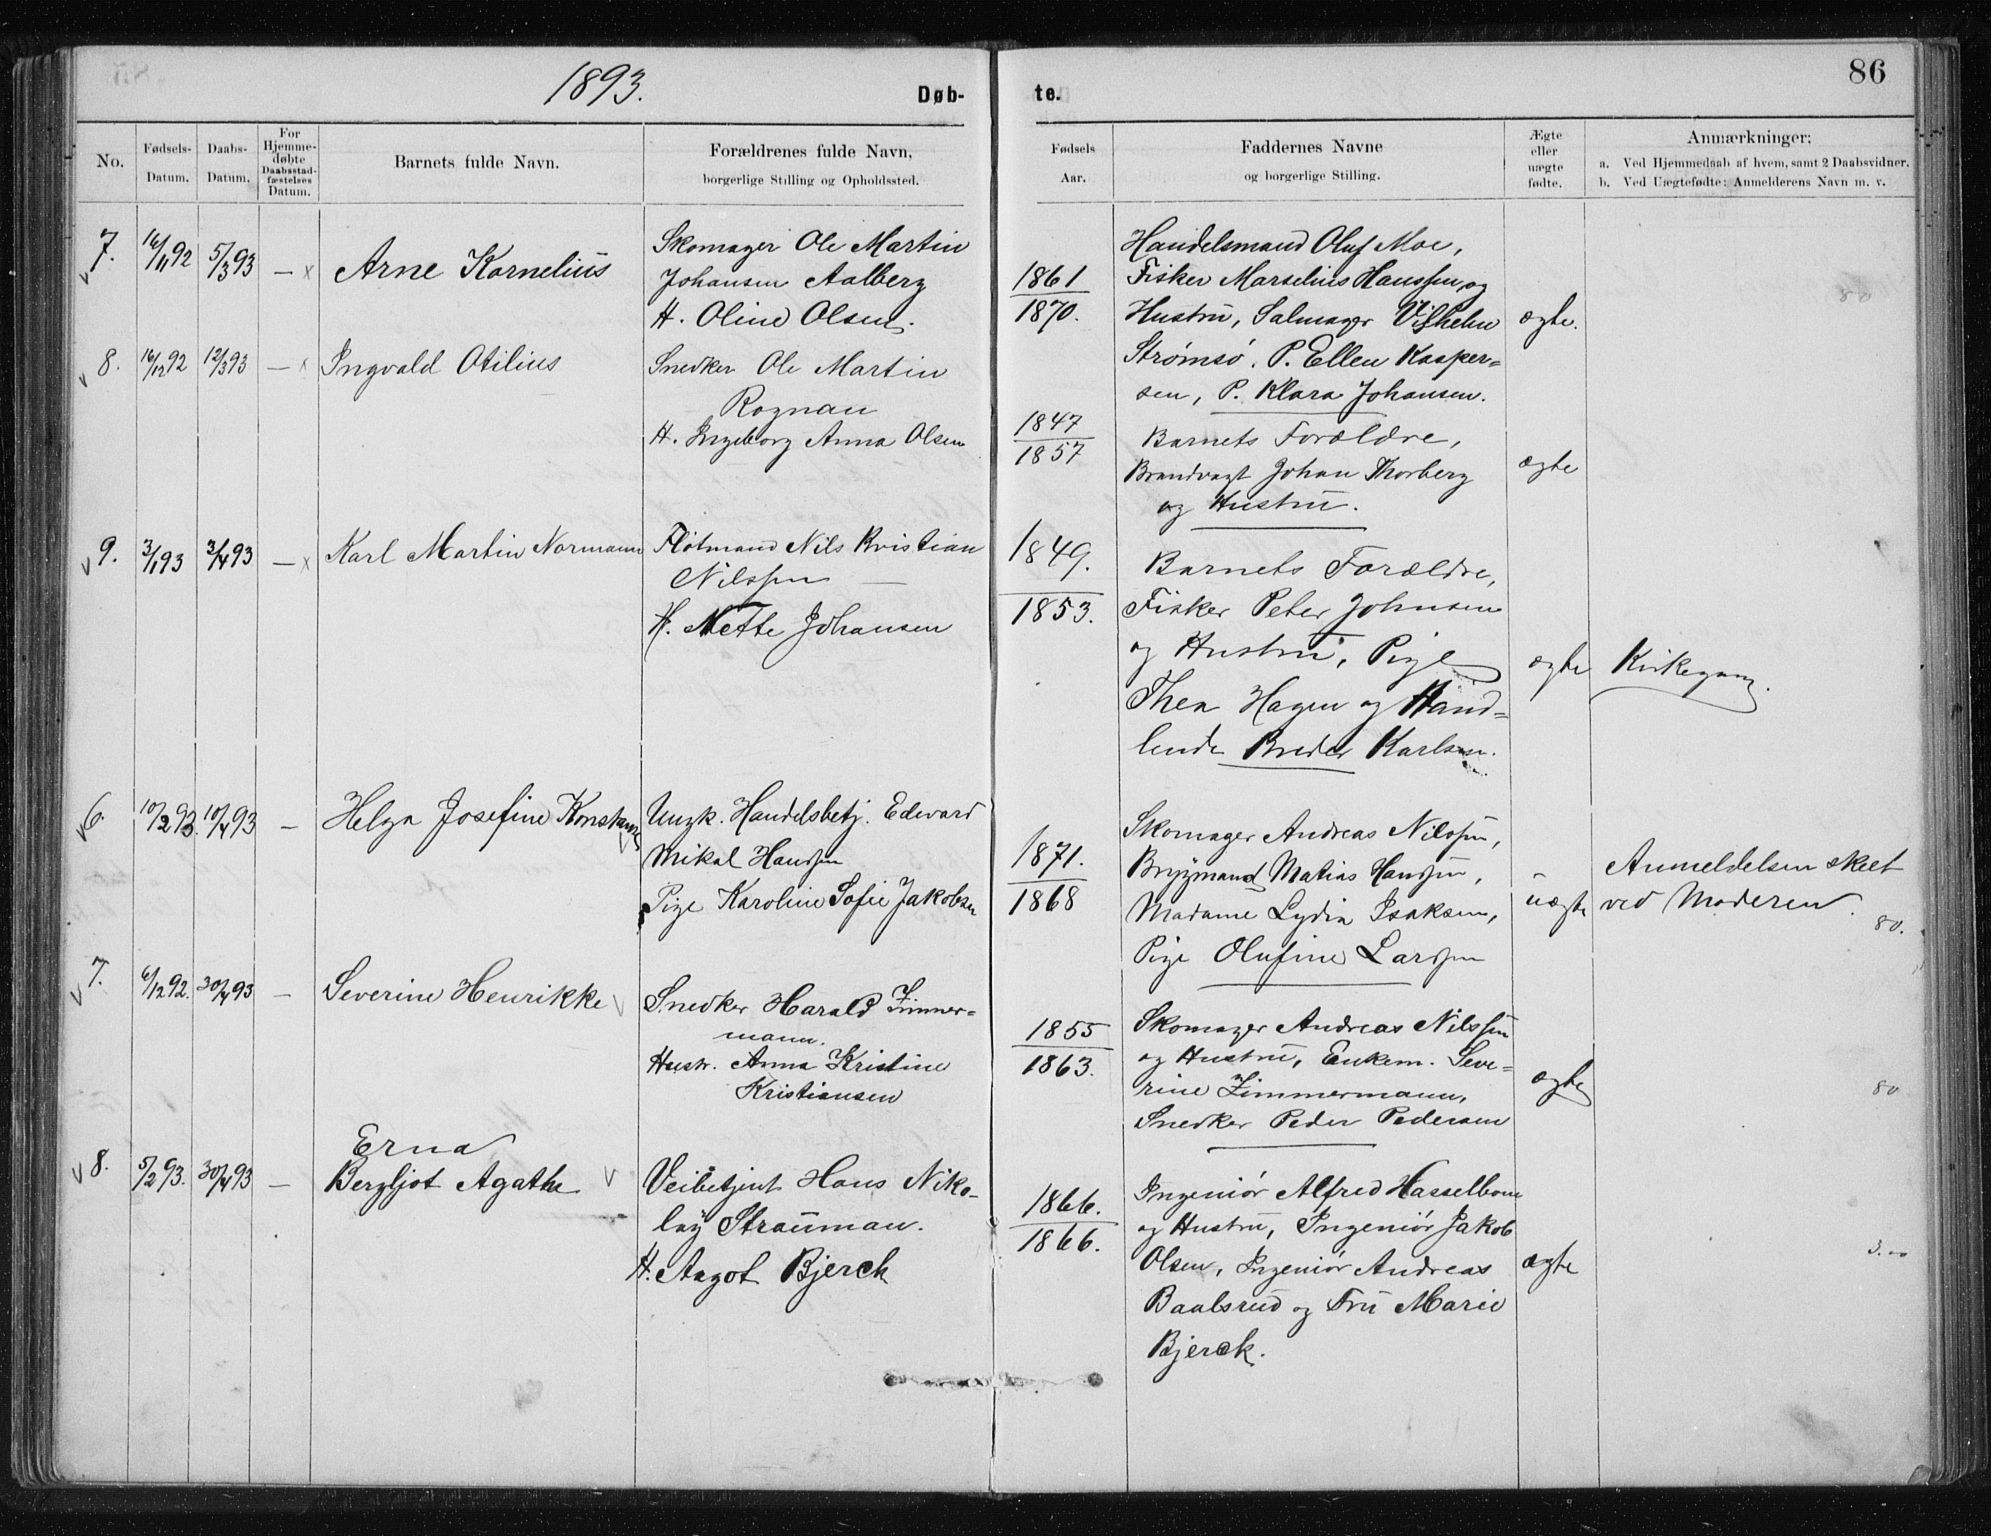 1893.
Døb-
te.
86
No.
Fødsels-
Datum.
Daabs-
Datum.
For
Hjemme-
døbte
Daabsstad-
fæstelses
Datum.
Barnets fulde Navn.
Forældrenes fulde Navn,
borgerlige Stilling og Opholdssted.
Fødsels
Aar.
Faddernes Navne
og borgerlige Stilling.
Ægte
eller
uægte
fødte.
Anmærkninger;
a. Ved Hjemmedaab af hvem, samt 2 Daabsvidner.
b. Ved Uægtefødte: Anmelderens Navn m. v.
7. 16/11 92 5/3 93 — x Arne Kornelius
Skomager Ole Martin
Johansen Aalberg
H. Oline Olsen.
1861
1870.
Handelsmand Oluf Moe,
Fisker Marselius Hanssen, og
Hustru, Salmager Vilhelm
Strømsø. P. Ellen Kasper-
sen, P. Klara Johansen.
ægte.
80
8. 16/12 92 12/3 93 — x Ingvald Otilius
Snedker Ole Martin
Rognan
H. Ingeborg Anna Olsen
1847
1857
Barnets Forældre,
Brandvagt Johan Thorberg
og Hustru.
ægte
9. 3/1 93 3/4 93 — x Karl Martin Normann
Flötmand Nils Kristian
Nilssen —
H. Mette Johansen
1849.
1853.
Barnets Forældre,
Fisker Peter Johnsen
og Hustru, Pige
Thea Hagen og Hand-
lende Breder Karlsen.
ægte
Kirkegang.
6. 10/2 93. 10/4 93 — Helga Josefine Konstanse
Ungk. Handelsbetj. Edevard
Mikal Hanssen
Pige Karoline Sofie Jakobsen
1871.
1868
Skomager Andreas Nilssen,
Brygmand Matias Hanssen,
Madame Lydia Isaksen,
Pige Olufine Larssen
uægte
Anmeldelsen skeet
ved Moderen.
80.
7. 6/12 92. 30/4 93 — Severine Henrikke
Snedker Harald Zimmer-
mann.
Hustr. Anna Kristine
Kristiansen
1855
1863.
Skomager Andreas Nilssen
og Hustru, Enkem. Seve-
rine Zimmermann,
Snedker Peder Pedersen
ægte
80
8. 5/2 93. 30/4 93 — Erna
Bergljot Agathe
Veibetjent Hans Niko-
lay Strauman.
H. Aagot Bjerck
1866.
1866.
Ingeniør Alfred Hasselbom
og Hustru, Ingeniør Jakob
Olsen, Ingeniør Andreas
Baalsrud og Fru Marie
Bjerck.
ægte
3.00